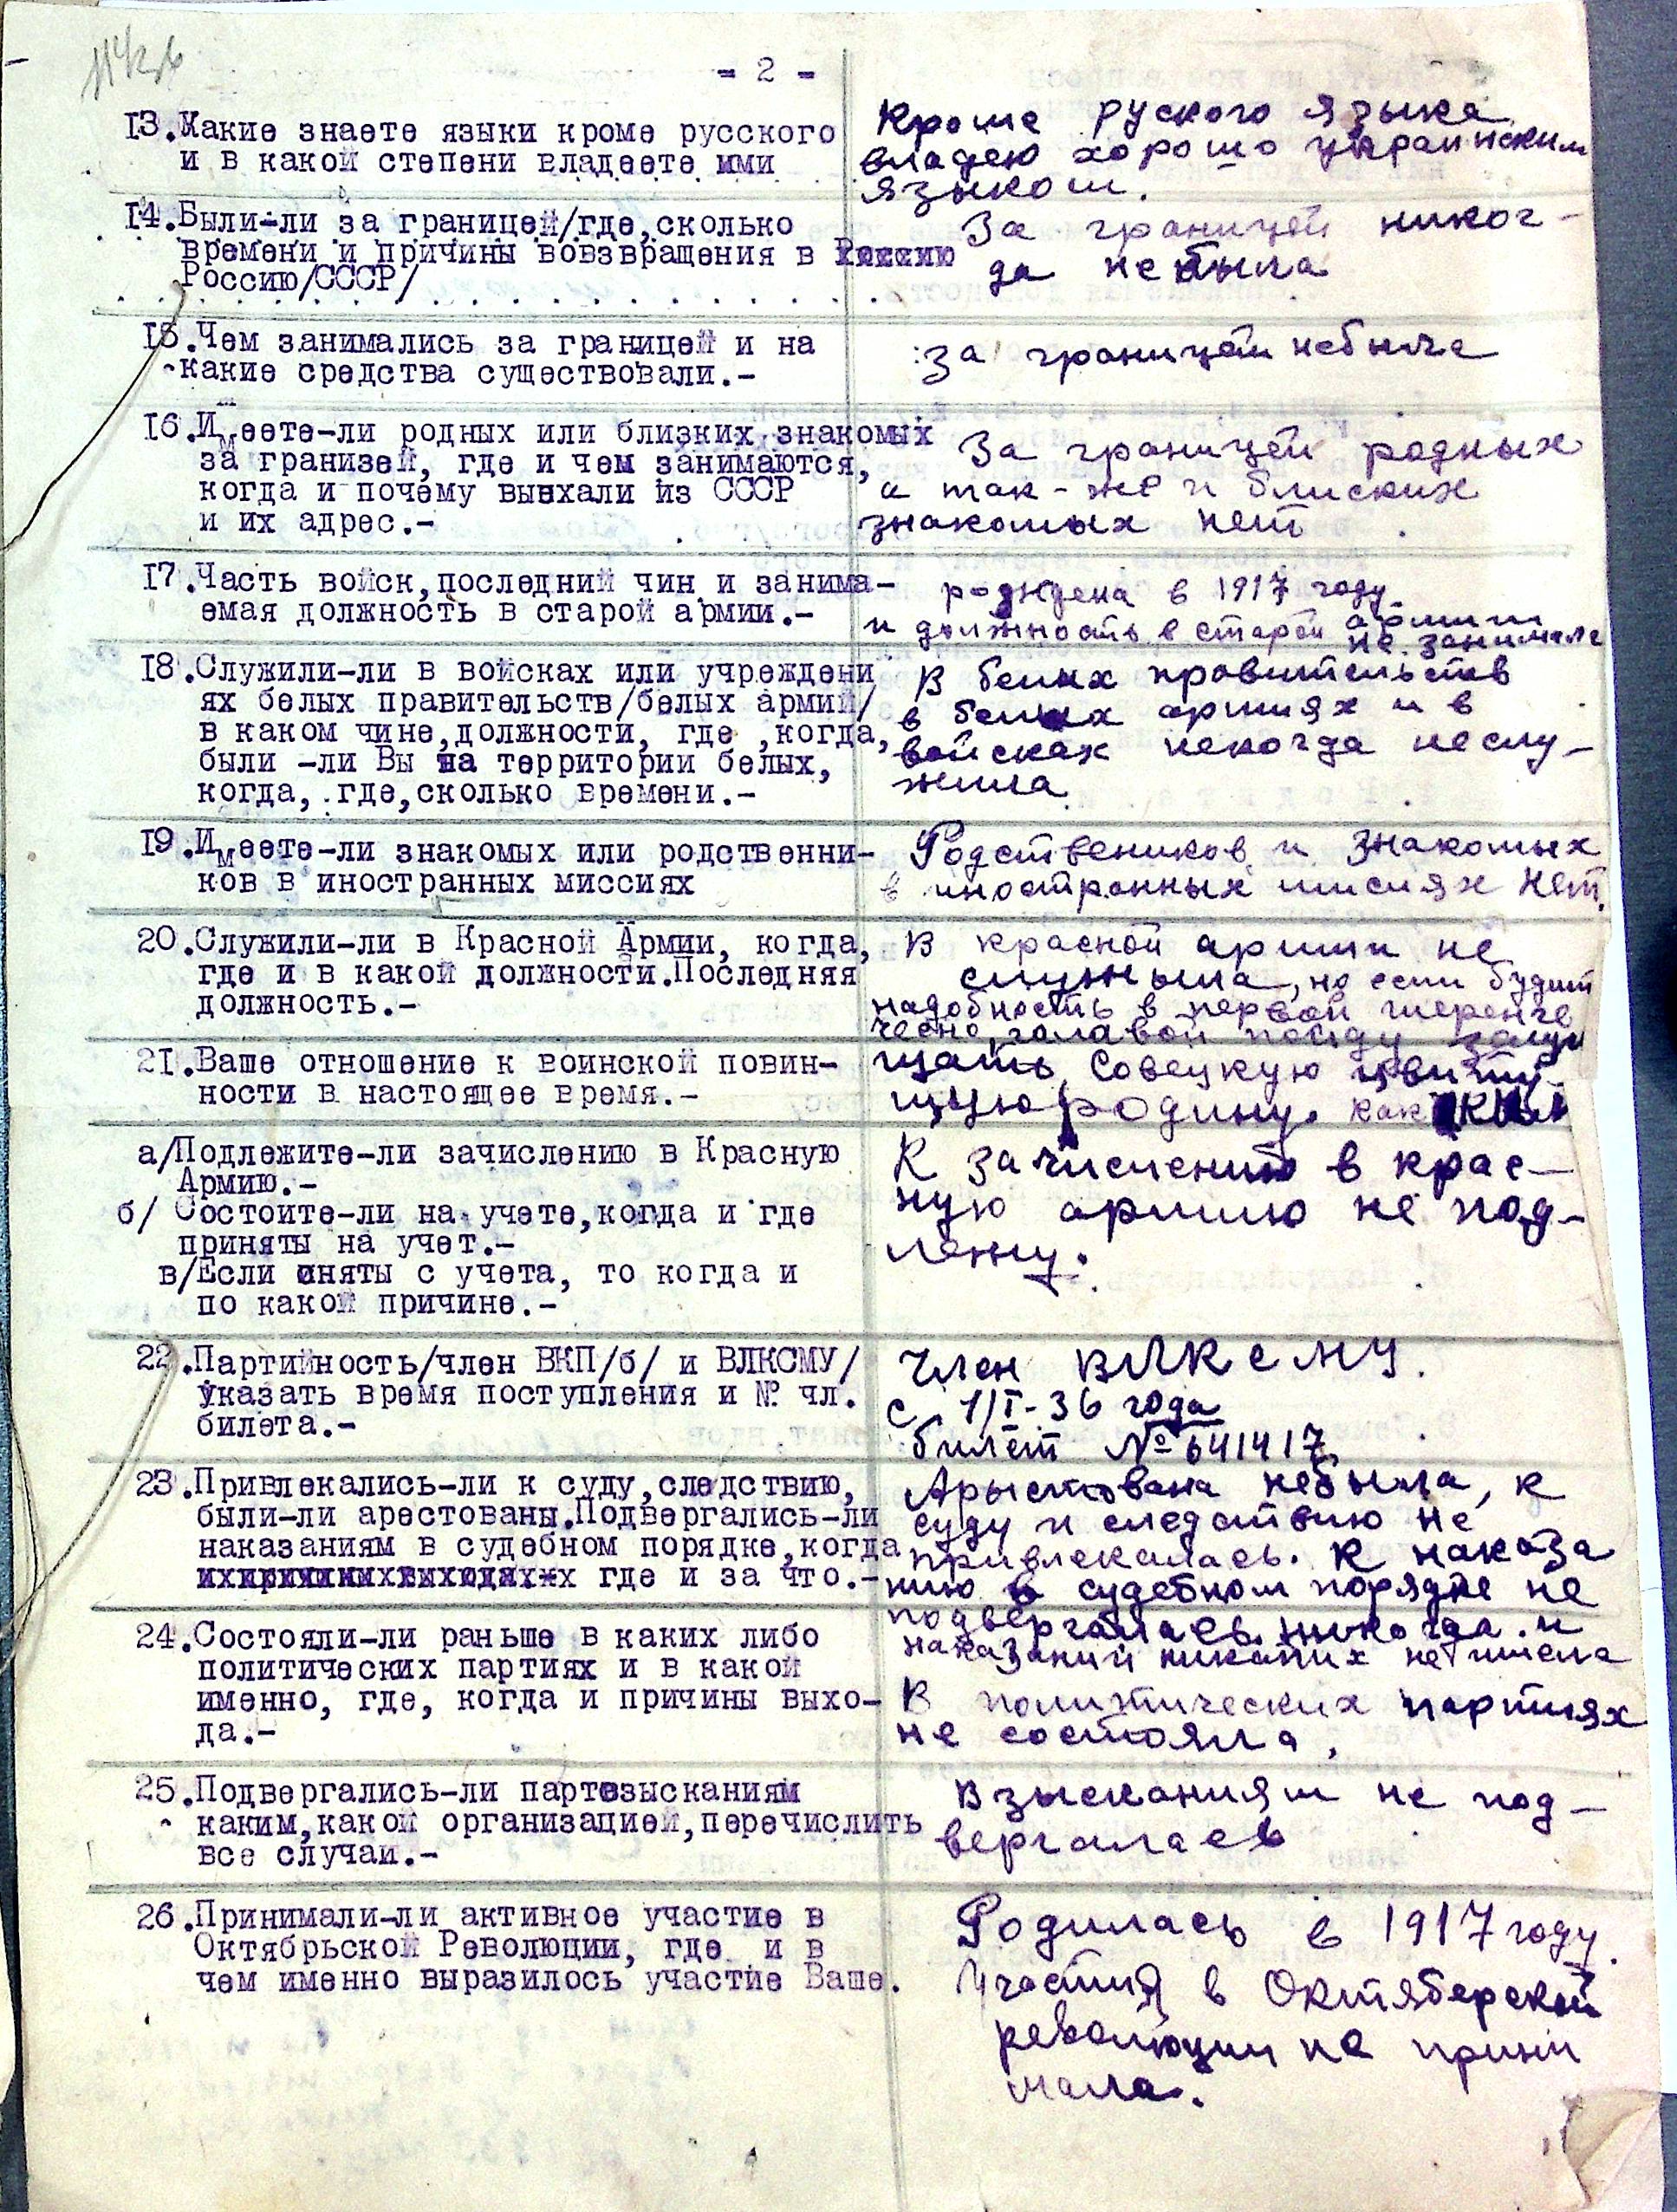 - 2 -
13.Какие знаете языки кроме русского
и в какой степени владеете ими
Кроме руского языка
владею хорошо украинским
языком.
14.Были-ли за границей/где,сколько
времени и причины вовзвращения в
Россию/СССР/
За границей никог-
да небыла
15.Чем занимались за границей и на
какие средства существовали.-
за границей небыла
16.Имеете-ли родных или близких знакомых
за гранизей, где и чем занимаются,
когда и почему выехали из СССР
и их адрес.-
За границей родных
а так-же и блиских
знакомых нет
17.Часть войск,последний чин и занима-
емая должность в старой армии.-
рождена в 1917 году
и должность в старой армии
не занимала
18.Служили-ли в войсках или учреждени
ях белых правительств/белых армий/
в каком чине,должности, где ,когда,
были -ли Вы на территории белых,
когда, где,сколько времени.-
В белых правительств
в белых армиях и в
войсках некогда неслу-
жила
19.Имеете-ли знакомых или родственни-
ков в иностранных миссиях
Родствеников и знакомых
в иностранных мисиях нет.
20.Служили-ли в Красной Армии, когда,
где и в какой должности.Последняя
должность.-
В красной армии не
служыла, но если будит
надобность в первой шеренге
галавой пойду защи
21.Ваше отношение к воинской повин-
ности в настоящее время.-
щать Совецкую цвиту-
щую родину. как
а/Подлежите-ли зачислению в Красную
Армию.-
б/ Состоите-ли на учете,когда и где
приняты на учет.-
в/Если сняты с учета, то когда и
по какой причине.-
К зачислению в крас-
ную армию не под-
лежу.
22.Партийность/член ВКП/б/ и ВЛКСМУ/
указать время поступления и № чл.
билета.-
Член ВЛКСМУ.
с 1/I-36 года
билет № 641417
23.Привлекались-ли к суду,следствию,
были-ли арестованы.Подвергались-ли
наказаниям в судебном порядке,когда
где и за что.-
Арыстована небыла, к
суду и следствию не
привлекалась. К наказа
нию в судебном порядке не
подвергалась никогда и
наказаний никаких не имела
24.Состояли-ли раньше в каких либо
политических партиях и в какой
именно, где, когда и причины выхо-
да.-
В политических партиях
не состояла,
25.Подвергались-ли партвзысканиям
каким,какой организацией,перечислить
все случаи.-
Взысканиям не под-
вергалась
26.Принимали-ли активное участие в
Октябрьской Революции, где и в
чем именно выразилось участие Ваше.
Родилась в 1917 году.
Участия в Октяберской
революции не прини
мала.